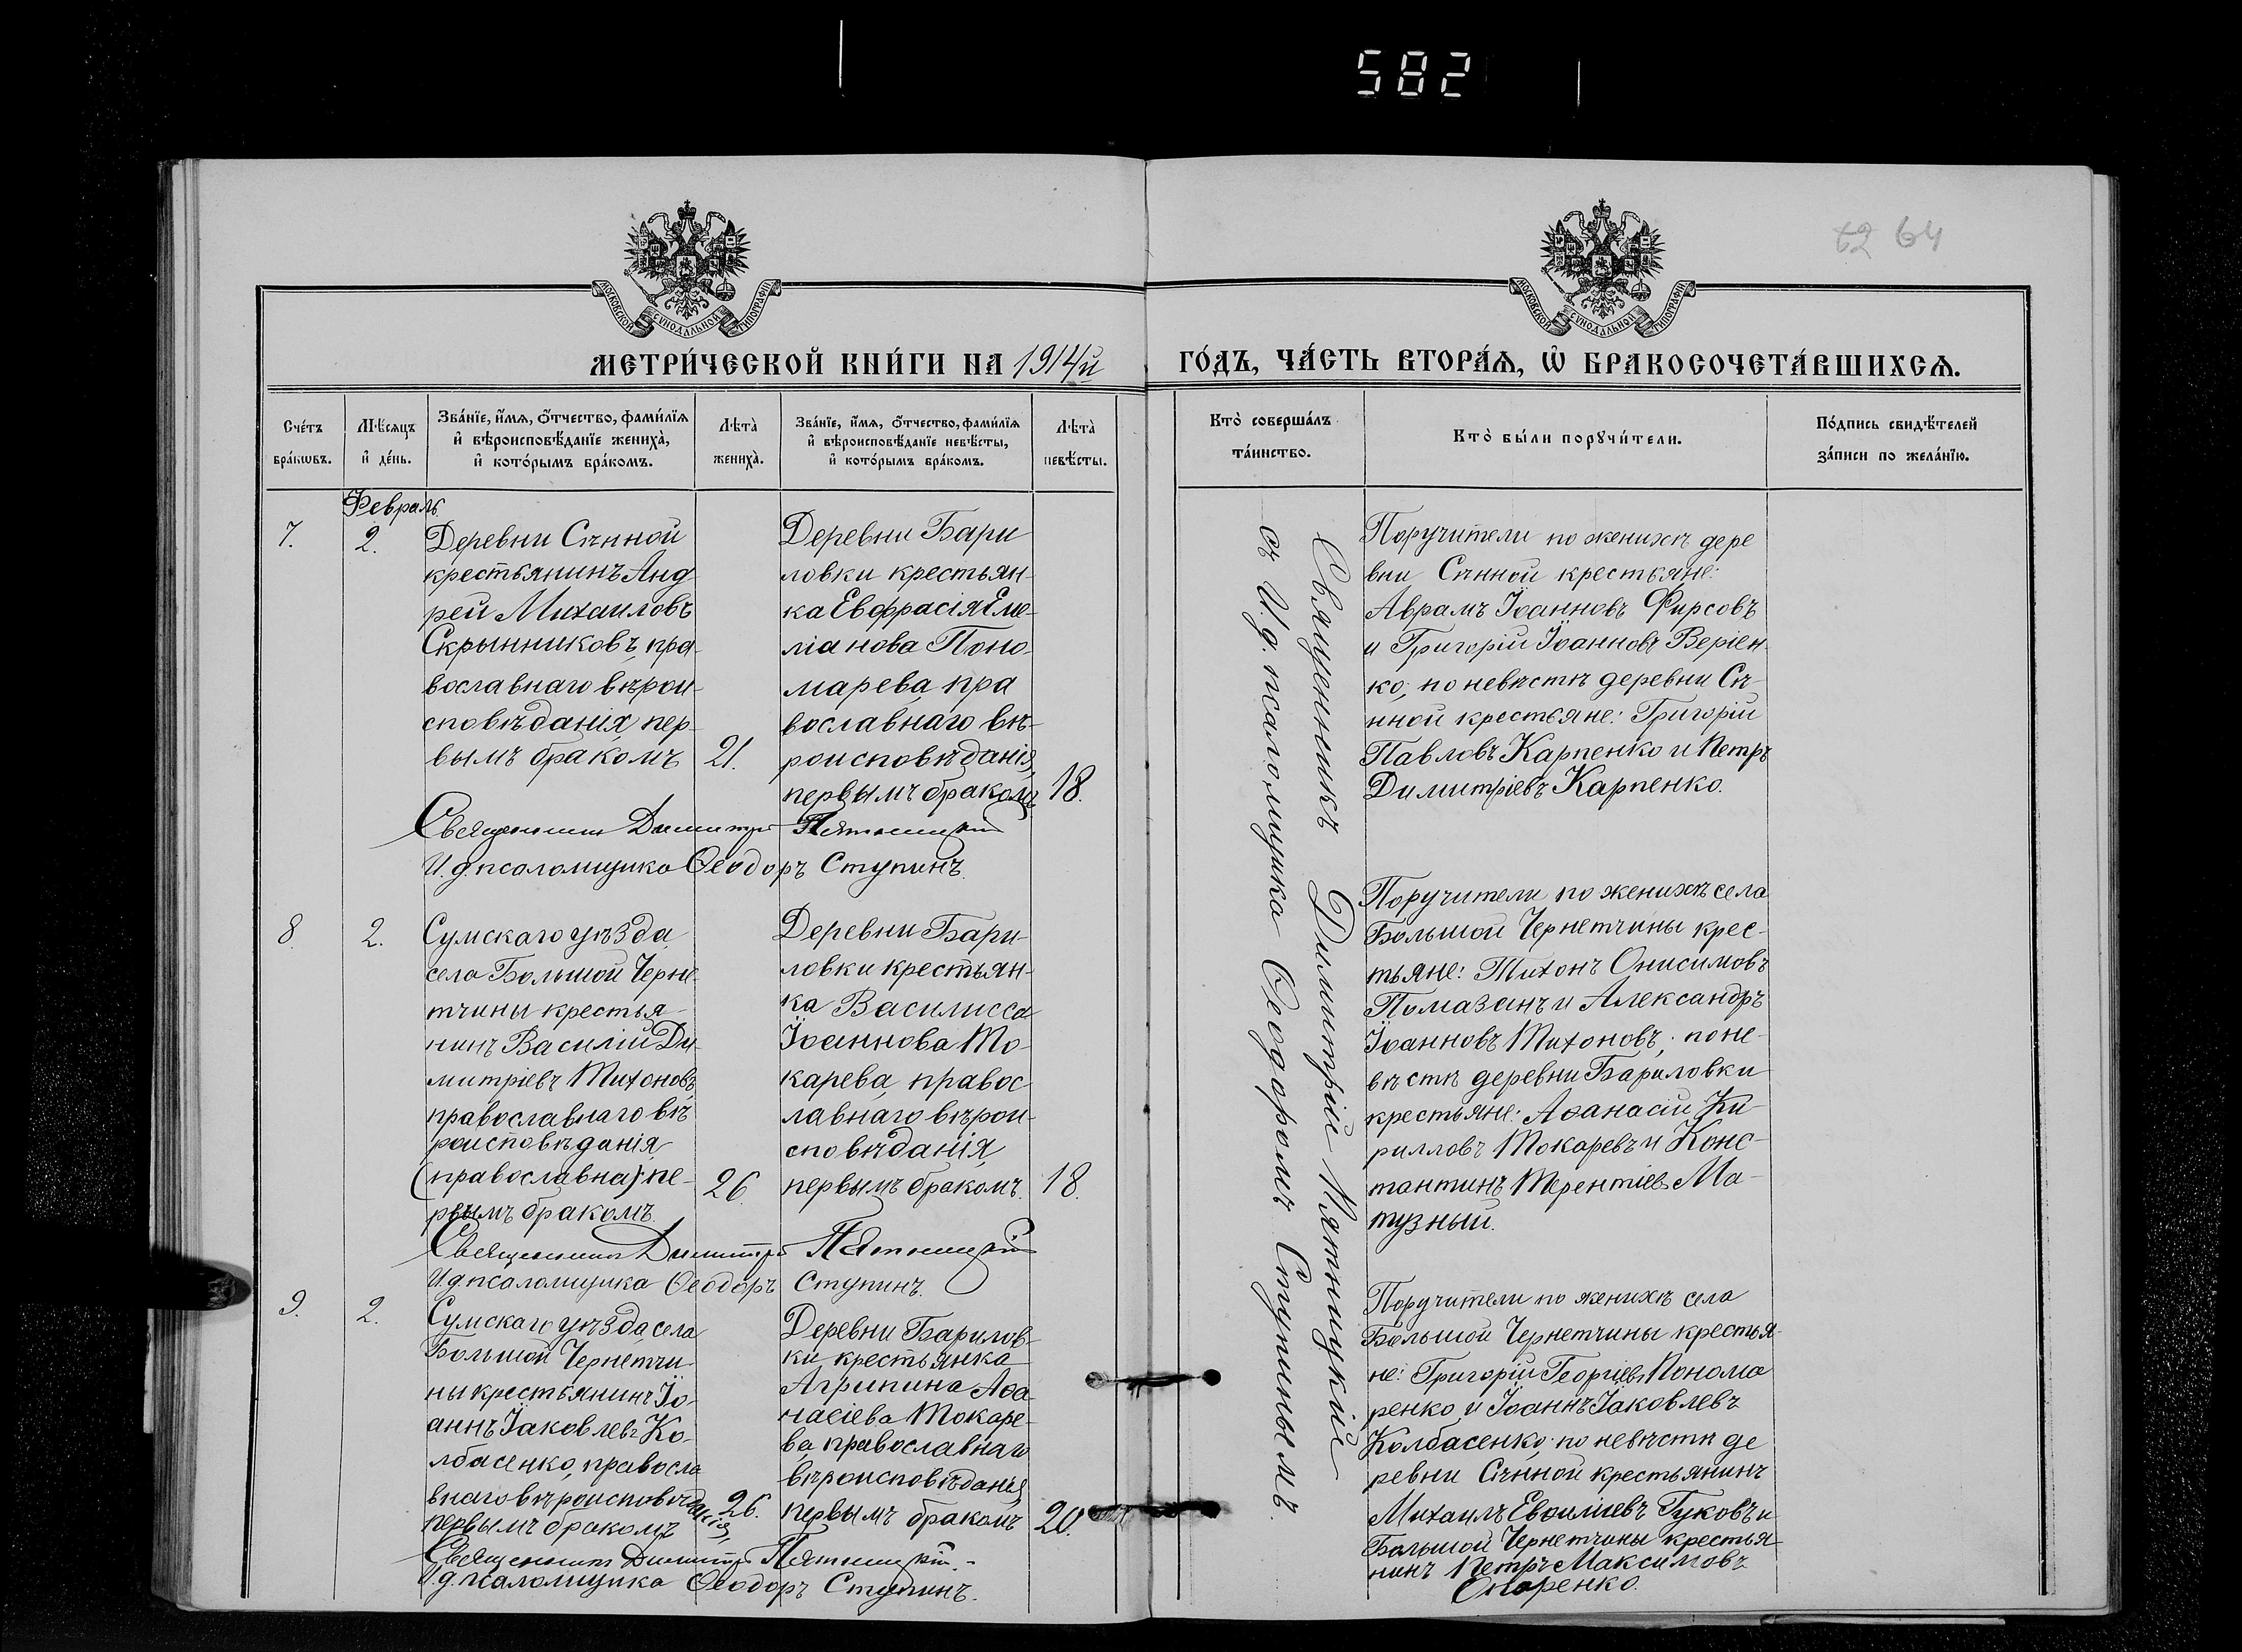 582
62 64
МОСКОВСКОЙ СѴНОДАЛЬНОЙ ТИПОГРАФІИ
МОСКОВСКОЙ СѴНОДАЛЬНОЙ ТИПОГРАФІИ
МЕТРИ́ЧЕСКОЙ КНИ́ГИ НА 1914й
ГО́ДЪ, ЧА́СТЬ ВТОРА́Ѧ, Ѡ БРАКОСОЧЕТА́ВШИХСѦ.
Сче́тъ
бра́кѡвъ.
Мѣ́сяцъ
и҆ де́нь.
Зва́нїе, и҆́мѧ, ѻ҆́тчество, фами́лїѧ
и҆ вѣроисповѣ́данїе жениха̀,
и҆ кото́рымъ бра́комъ.
Лѣта̀
жениха̀.
Зва́нїе, и҆́мѧ, ѻ҆́тчество, фами́лїѧ
и҆ вѣроисповѣ́данїе невѣ́сты,
и҆ кото́рымъ бра́комъ.
Лѣта̀
невѣ́сты.
Кто̀ соверша́лъ
та́инство.
Кто̀ бы́ли порꙋчи́тели.
По́дпись свидѣ́телей
за́писи по жела́нїю.
Февраль
7.
2.
Деревни Сѣнной
крестьянинъ Анд
рей Михаиловъ
Скрынниковъ, пра-
вославнаго вѣрои-
сповѣданія, пер-
вымъ бракомъ
21.
Деревни Бари
ловки крестьян-
ка Евфрасія Еме-
ліанова Поно-
марева, пра
вославнаго вѣ-
роисповѣданія,
первымъ бракомъ
18.
Священникъ Димитрій Пятницкій
И.д. псаломщика Ѳеодоръ Ступинъ.
Поручители по женихѣ дере
вни Сѣнной крестьяне:
Аврамъ Іоанновъ Фирсовъ
и Григорій Іоанновъ Веріен-
ко; по невѣстѣ деревни Сѣ-
нной крестьяне: Григорій
Павловъ Карпенко и Петръ
Димитріевъ Карпенко.
Священникъ Димитрій Пятницкій
съ И.д. псаломщика Ѳеодоромъ Ступинымъ.
8.
2.
Сумскаго уѣзда
села Большой Черне-
тчины крестья-
нинъ Василій Ди-
митріевъ Тихоновъ,
православнаго вѣ
роисповѣданія
(православна) пе-
рвымъ бракомъ.
26
Деревни Бари-
ловки крестьян-
ка Василисса
Іоаннова То-
карева, правос
лавнаго вѣрои-
сповѣданія,
первымъ бракомъ.
18.
Священникъ Димитрій Пятницкій
И.д. псаломщика Ѳеодоръ Ступинъ.
Поручители по женихѣ села
Большой Чернетчины крес-
тьяне: Тихонъ Онисимовъ
Помазанъ и Александръ
Іоанновъ Тихоновъ; по не-
вѣстѣ деревни Бариловки
крестьяне: Аѳанасій Ки-
рилловъ Токаревъ и Конс-
тантинъ Терентіевъ Ма-
тузный.
9.
2.
Сумскаго уѣзда, села
Большой Чернетчи-
ны крестьянинъ Іо-
аннъ Іаковлевъ Ко-
лбасенко, правосла
внаго вѣроисповѣданія,
первымъ бракомъ
26.
Деревни Барилов-
ки, крестьянка
Агрипина Аѳа-
насіева Токаре-
ва, православнаго
вѣроисповѣданія,
первымъ бракомъ
20.
Священникъ Димитрій Пятницкій.
И.д. псаломщика Ѳеодоръ Ступинъ.
Поручители по женихѣ села
Большой Чернетчины крестья-
не: Григорій Георгіевъ Понома
ренко и Іоаннъ Іаковлевъ
Колбасенко; по невѣстѣ де
ревни Сѣнной крестьянинъ
Михаилъ Евѳиміевъ Гуковъ и
Большой Чернетчины крестья
нинъ Петръ Максимовъ
Опаренко.